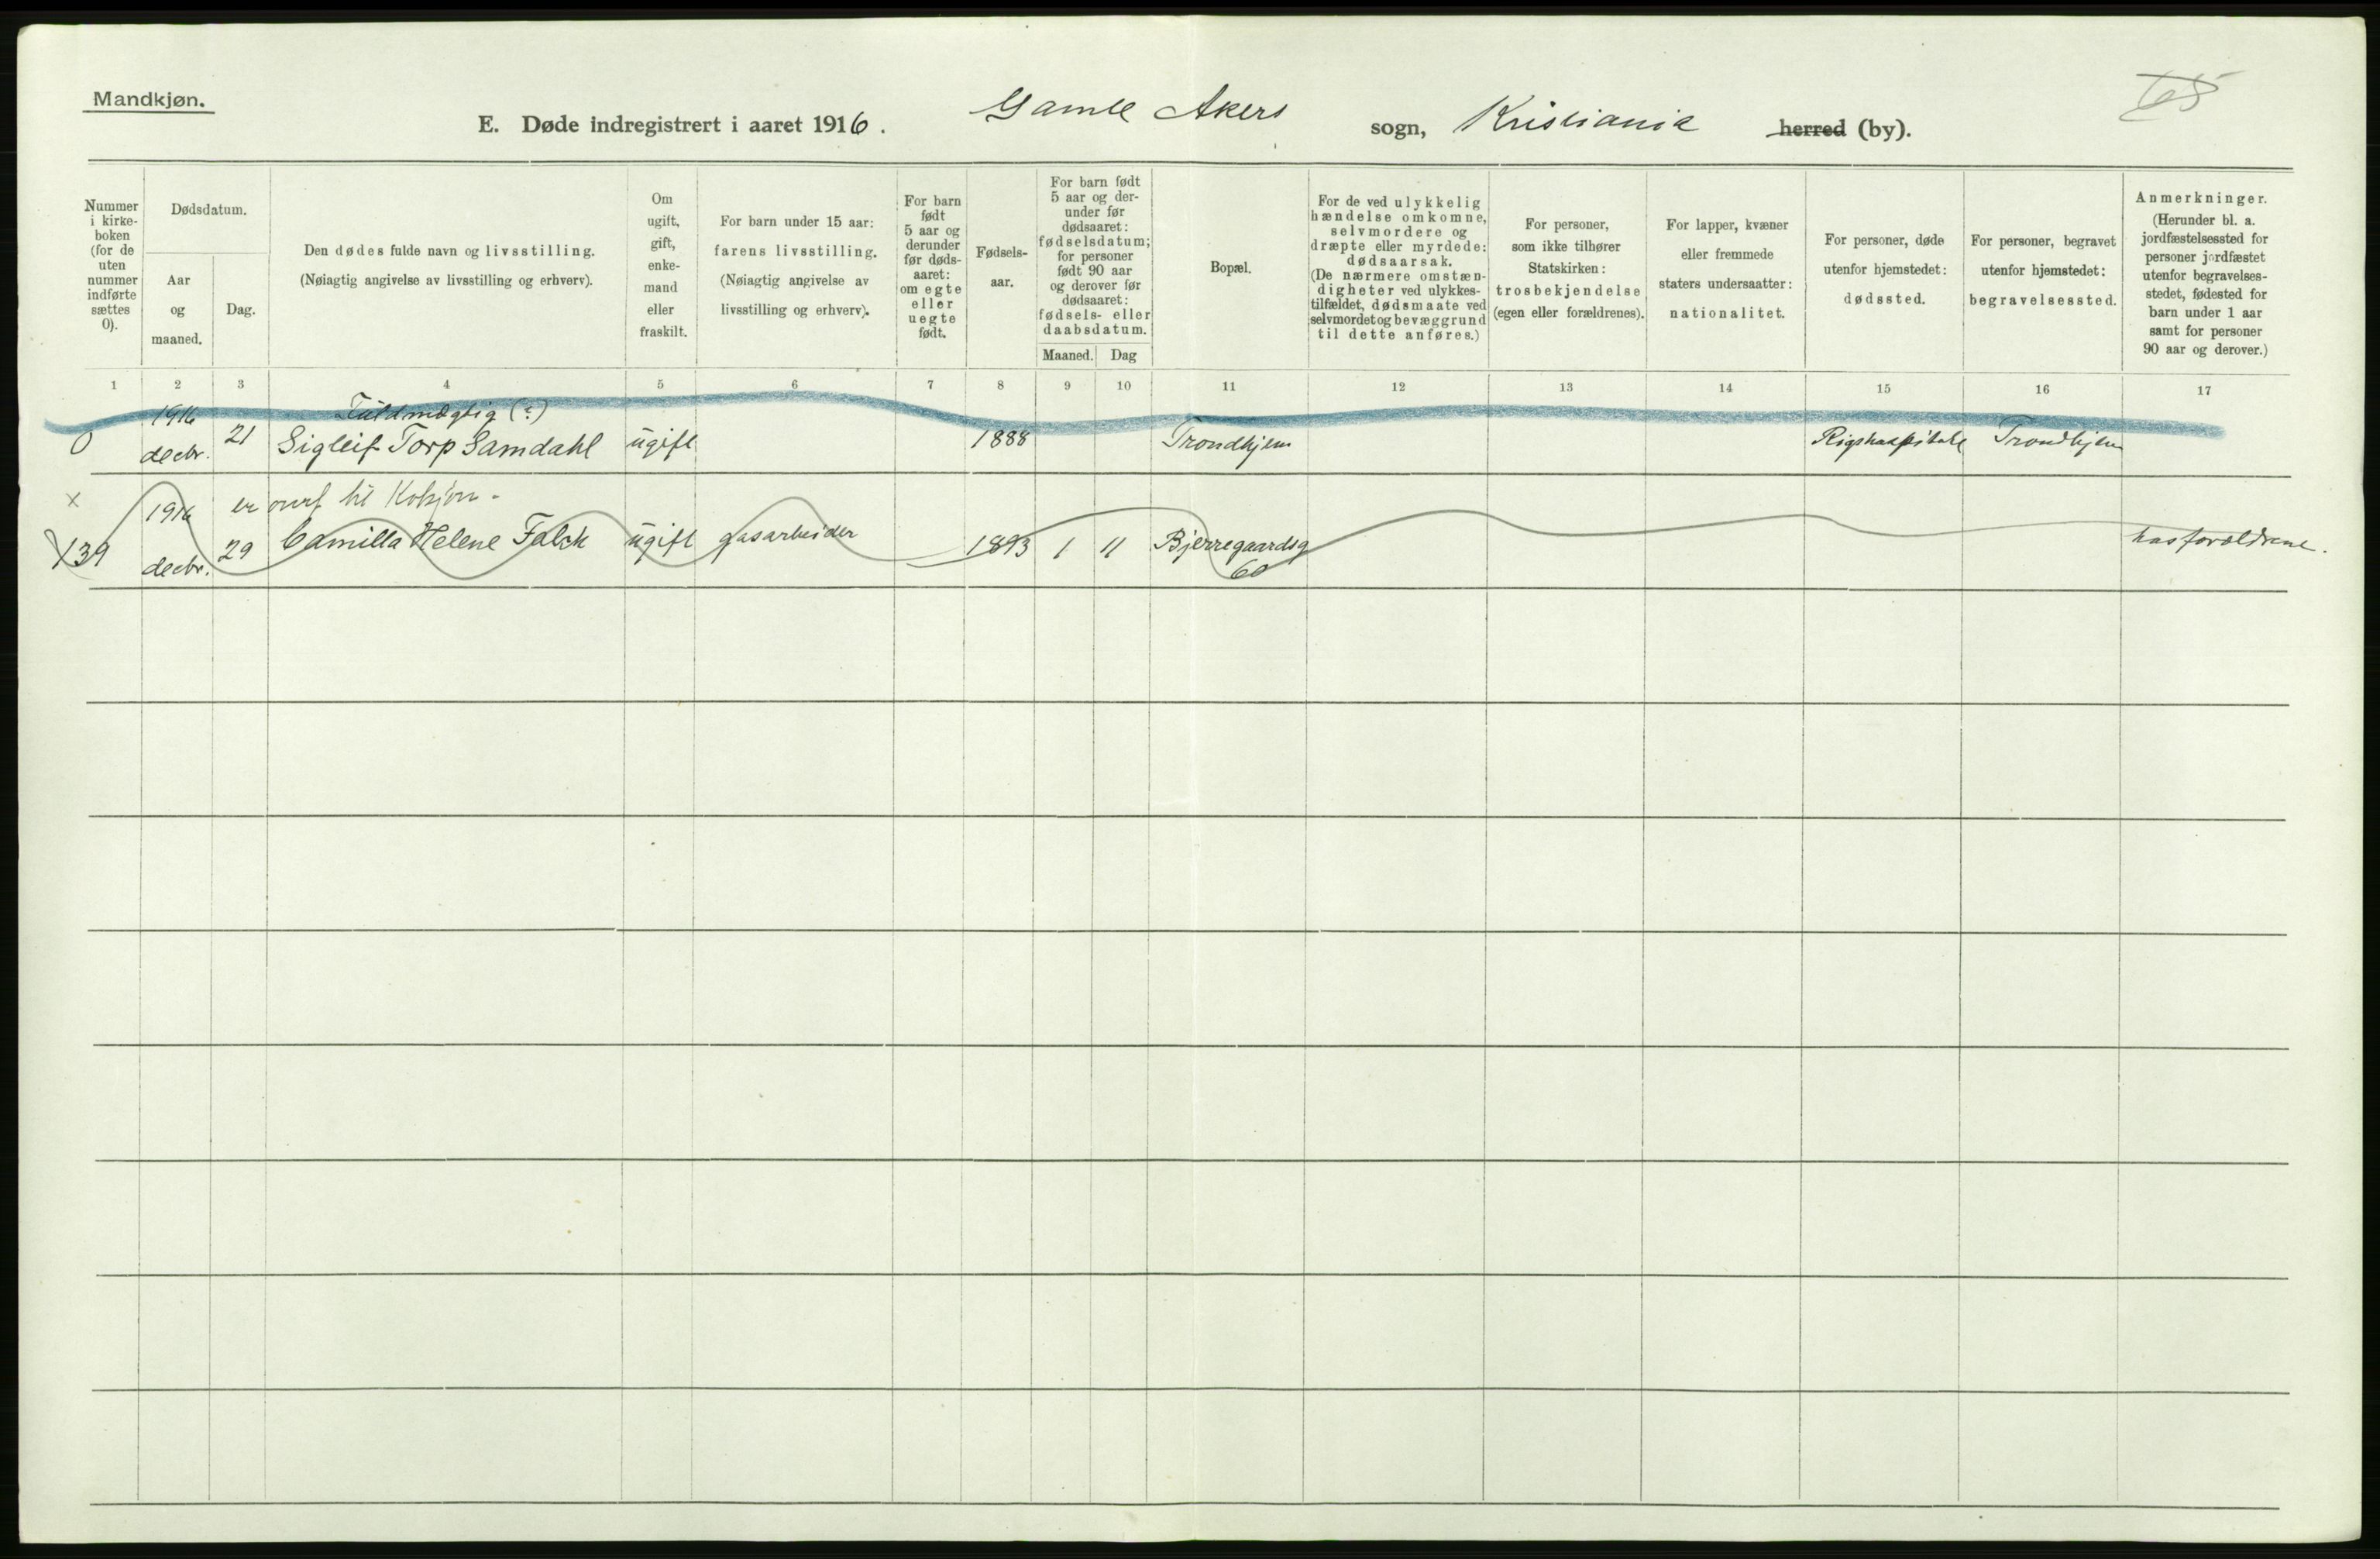 Mandkjøn.
E. Døde indregistrert i aaret 1916. Gamle Akers sogn, Kristiania herred (by).
65
Nummer
i kirke-
boken
(for de
uten
nummer
indførte
sættes
0).
Dødsdatum.
Aar
og
maaned.
Dag.
Den dødes fulde navn og livsstilling.
(Nøiagtig angivelse av livsstilling og erhverv).
Om
ugift,
gift,
enke-
mand
eller
fraskilt.
For barn under 15 aar:
farens livsstilling.
(Nøiagtig angivelse av
livsstilling og erhverv).
For barn
født
5 aar og
derunder
før døds-
aaret:
om egte
eller
uegte
født.
Fødsels-
aar.
For barn født
5 aar og der-
under før
dødsaaret:
fødselsdatum;
for personer
født 90 aar
og derover før
dødsaaret:
fødsels- eller
daabsdatum.
Maaned.
Dag
Bopæl.
For de ved ulykkelig
hændelse omkomne,
selvmordere og
dræpte eller myrdede:
dødsaarsak.
(De nærmere omstæn-
digheter ved ulykkes-
tilfældet, dødsmaate ved
selvmordet og bevæggrund
til dette anføres.)
For personer,
som ikke tilhører
Statskirken:
trosbekjendelse
(egen eller forældrenes).
For lapper, kvæner
eller fremmede
staters undersaatter:
nationalitet.
For personer, døde
utenfor hjemstedet:
dødssted.
For personer, begravet
utenfor hjemstedet:
begravelsessted.
Anmerkninger.
(Herunder bl. a.
jordfæstelsessted for
personer jordfæstet
utenfor begravelses-
stedet, fødested for
barn under 1 aar
samt for personer
90 aar og derover.)
1 2 3 4 5 6 7 8 9 10 11 12 13 14 15 16 17
1916 Fuldmægtig (?)
0 decbr. 21 Sigleif Torp Samdahl ugift 1888 Trondhjem Rigshospitalet Trondhjem
x 1916 er overf til Kvkjøn.
139 decbr. 29 Camilla Helene Falck ugift gasarbeider 1893 1 11 Bjerregaardsg hos forældrene.
60